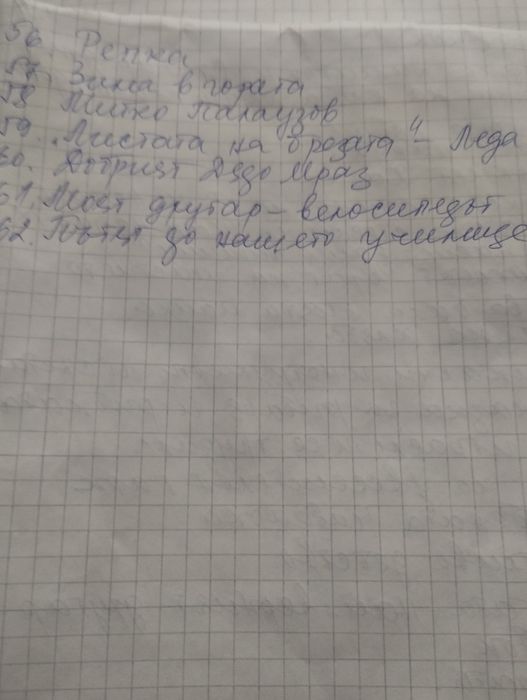 56. Репка
57. Зима в гората
58. Митко Палаузов
59. „Листата на брезата" - Леда
60. Добрият Дядо Мраз
61. Моят другар - велосипедът
62. Пътят до нашето училище